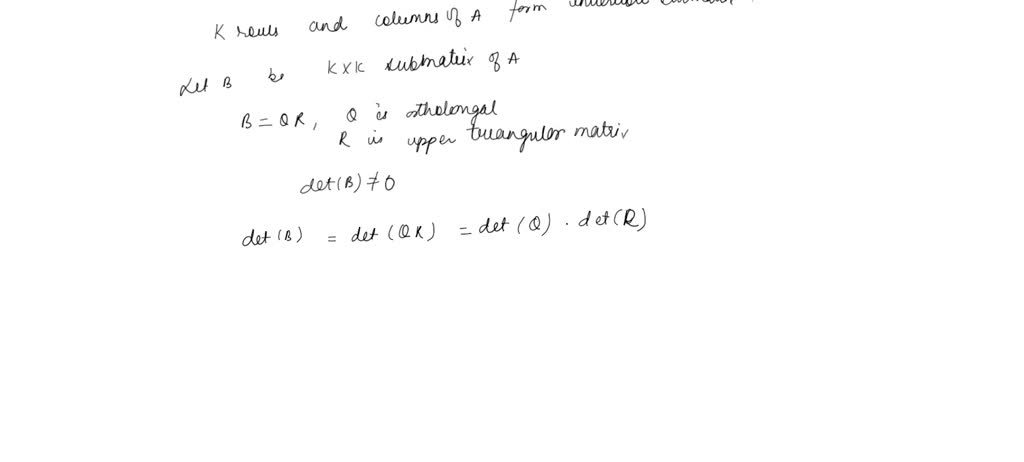 K rows and columns of A form
Let B be K×K submatrix of A
B = QR, Q is otholongal
R is upper truangular matrix
det(B) ≠ 0
det(B) = det(QR) = det(Q) . det(R)